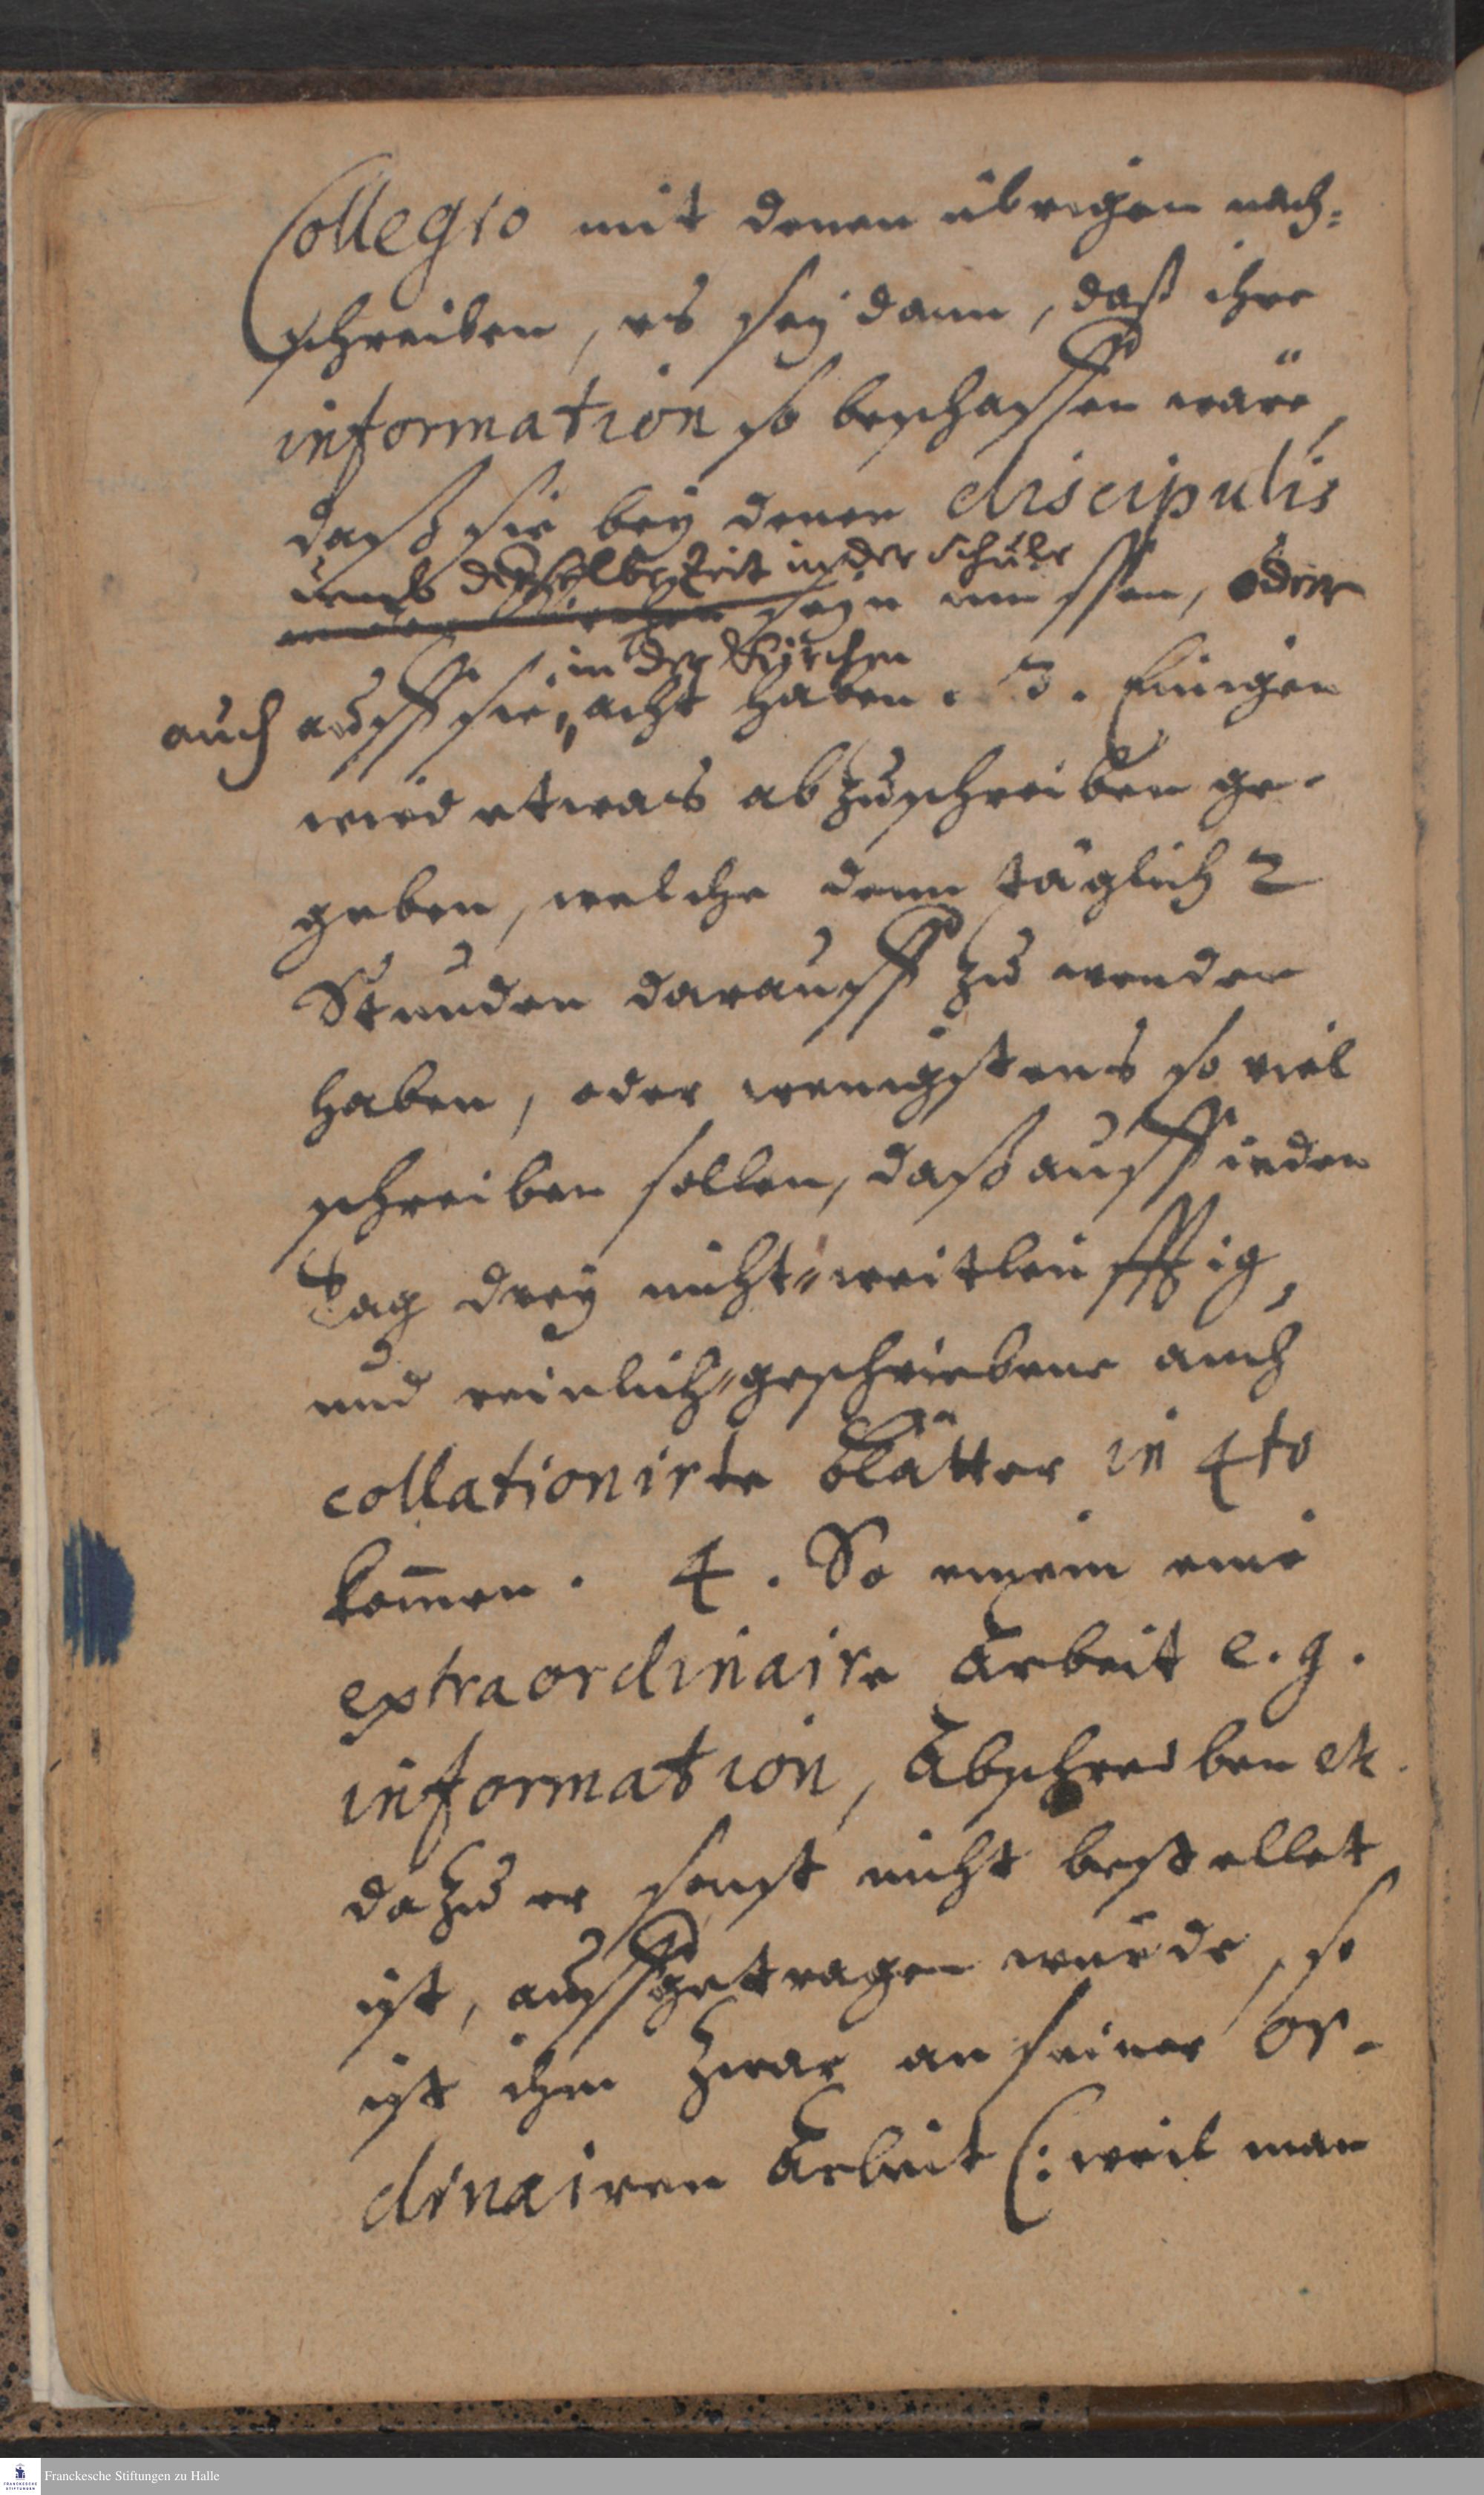 Collegio mit denen übrigen nach-
schreiben, es sey dann, daß ihre
information so beschaffen wäre,
daß sie bey denen discipulis
umb dieselbe Zeit in der Schule
seyn müssen, oder
in der Kirchen
auch auff sie, acht haben. 3. Einigen
wird etwas abzuschreiben ge-
geben, welche denn täglich 2
Stunden darauff zu wenden
haben, oder wenigstens so viel
schreiben sollen, daß auff ieden
Tag drey nicht-weitleufftig,
und reinlich-geschriebene auch
collationirte Blätter in 4to
kom̄en. 4. So einem eine
extraordinaire Arbeit e. g.
information, Abschreiben etc.
dazu er sonst nicht bestellet
ist, auffgetragen würde, so
ist ihm zwar an seiner or-
dinairen Arbeit (: weil man
Franckesche Stiftungen zu Halle